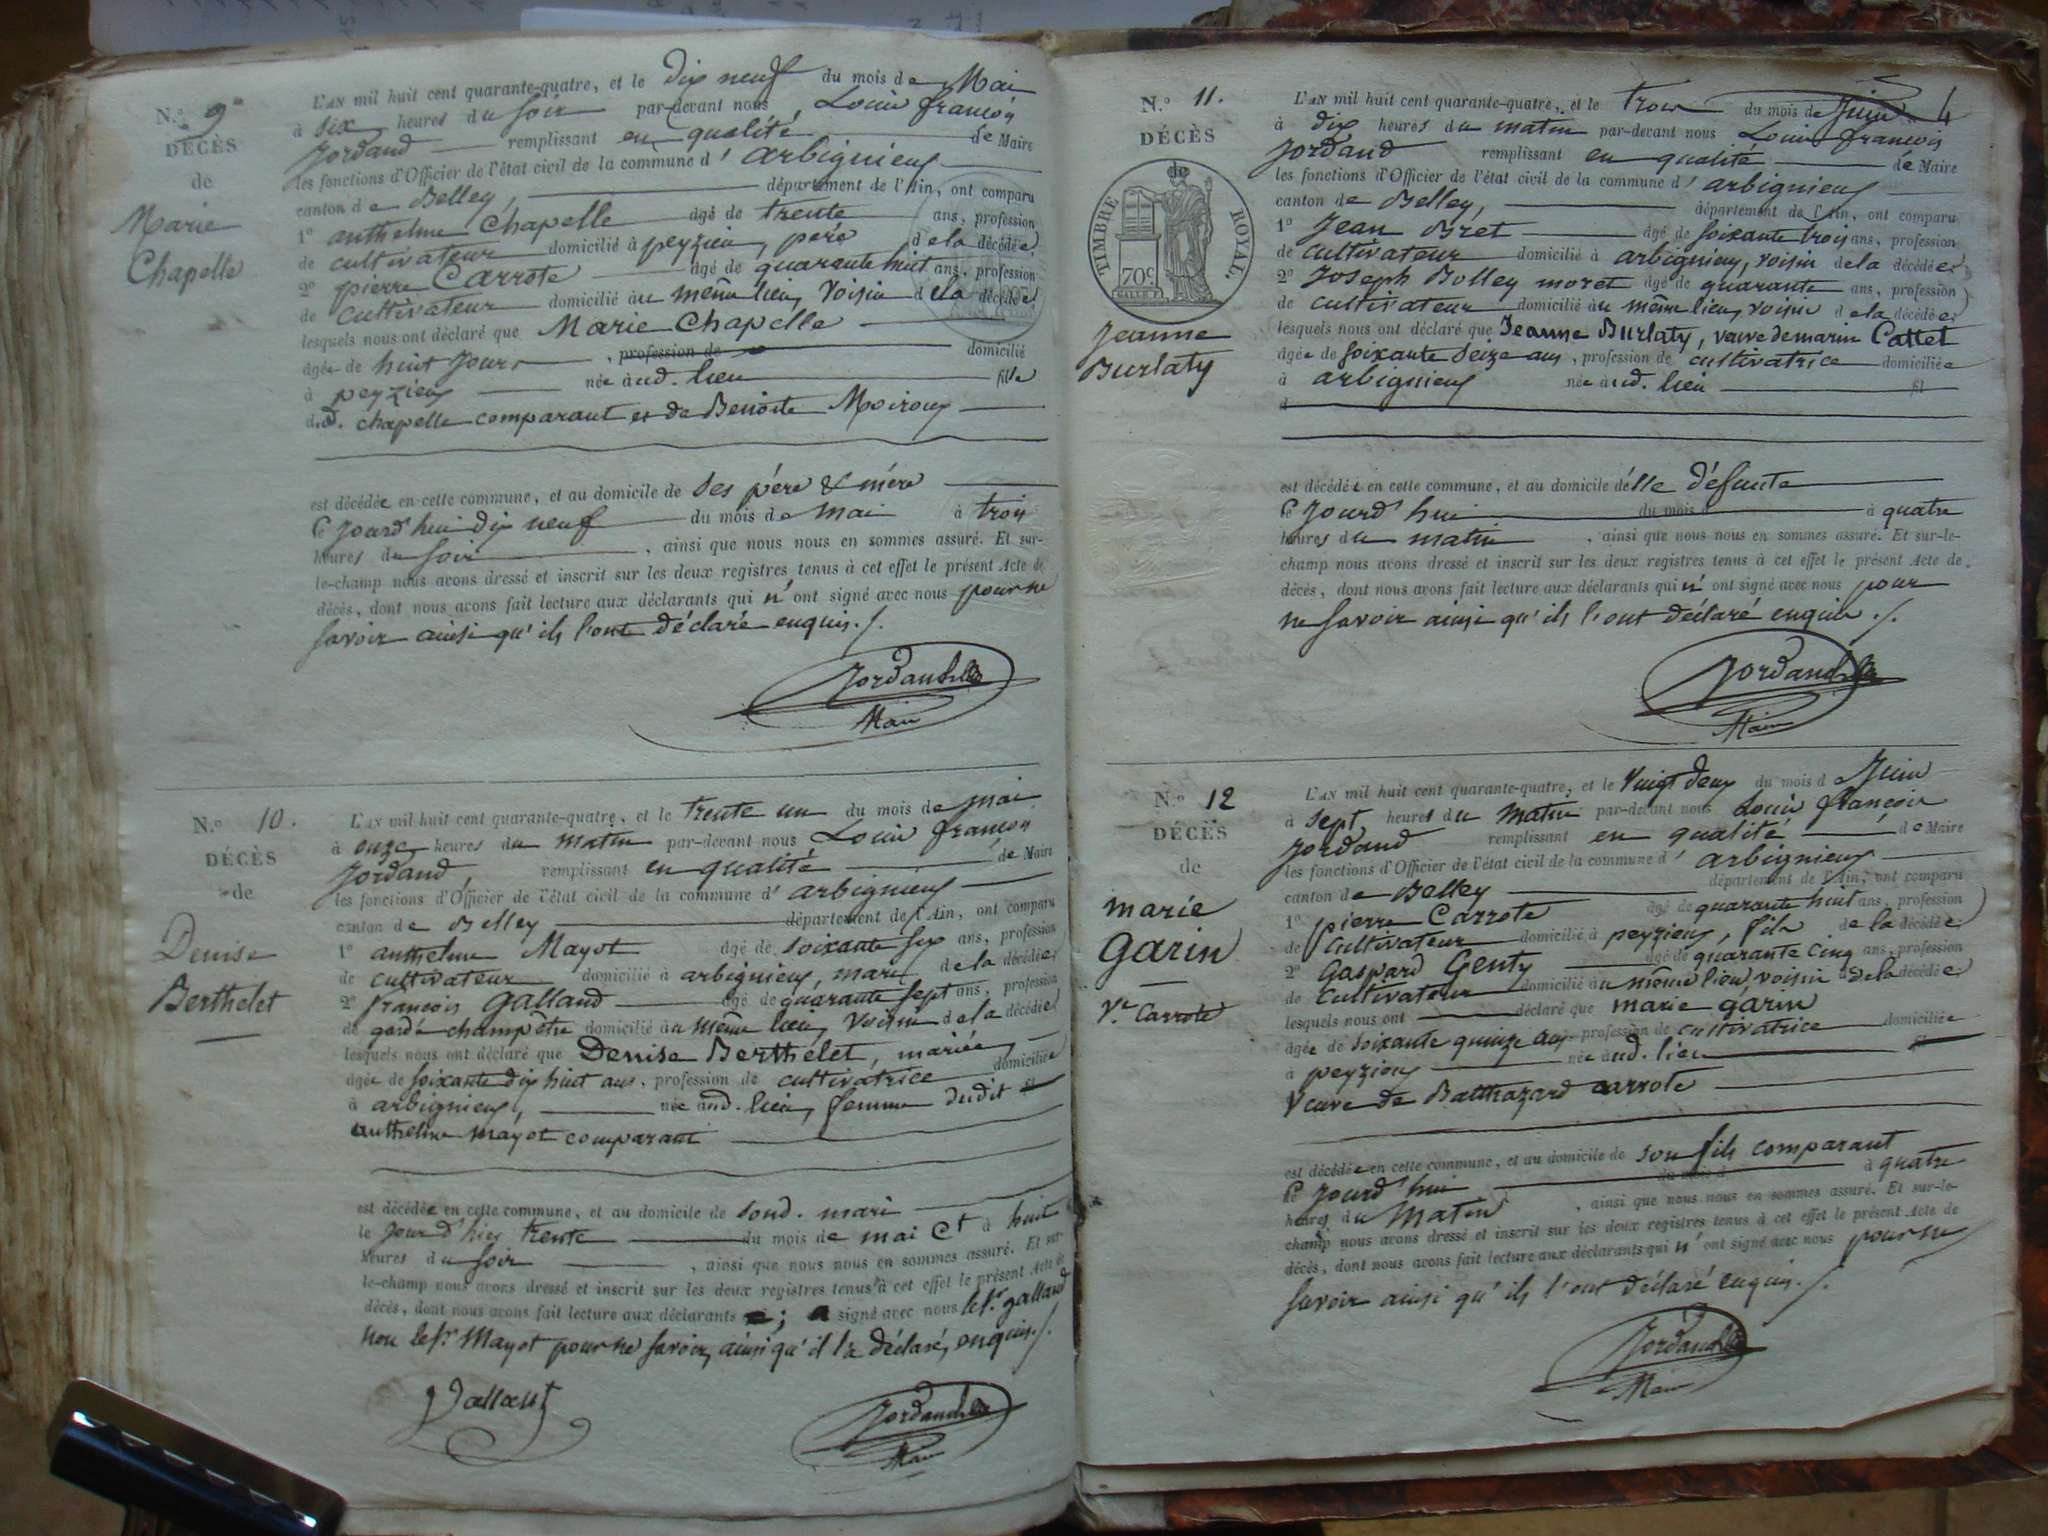 N.° 9°
DÉCÈS
de
Marie
Chapelle
L'AN mil huit cent quarante-quatre, et le dix neuf du mois de Mai
à six heures du soir par-devant nous Louis françois
Jordand remplissant en qualité de Maire
les fonctions d'Officier de l'état civil de la commune d' arbignieu
canton de Belley, département de l'Ain, ont comparu
1° anthelme Chapelle âgé de trente ans, profession
de cultivateur domicilié à peyzieu, père de la décédée
2° pierre Carrote âgé de quarante huit ans, profession
de cultivateur domicilié au même lieu, Voisin de la décédée
lesquels nous ont déclaré que Marie Chapelle
âgée de huit jours, profession de domicilié
à peyzieu née aud. lieu fille
d.d. chapelle comparant et de Benoite Moiroux
est décédée en cette commune, et au domicile de ses père & mère
Ce jourd'hui dix neuf du mois de mai à trois
heures du soir, ainsi que nous nous en sommes assuré. Et sur-
le-champ nous avons dressé et inscrit sur les deux registres tenus à cet effet le présent Acte de
décès, dont nous avons fait lecture aux déclarants qui n'ont signé avec nous pour ne
savoir ainsi qu'ils l'ont déclaré enquis./.
Jordand
Maire
N.° 10.
DÉCÈS
de
Denise
Berthelet
L'AN mil huit cent quarante-quatre, et le trente un du mois de mai
à onze heures du matin par-devant nous Louis françois
Jordand, remplissant en qualité de Maire
les fonctions d'Officier de l'état civil de la commune d' arbignieu
canton de Belley département de l'Ain, ont comparu
1° anthelme Mayot âgé de soixante six ans, profession
de cultivateur domicilié à arbignieu, mari de la décédée
2° françois Galland âgé de quarante sept ans, profession
de garde champêtre domicilié au même lieu, Voisin de la décédée
lesquels nous ont déclaré que Denise Berthelet, mariée
âgée de soixante dix huit ans, profession de cultivatrice domiciliée
à arbignieu, née aud. lieu, femme dudit fil
anthelme mayot comparant
est décédée en cette commune, et au domicile de soud. mari
le jour d'hier trente du mois de mai et à huit
heures du soir, ainsi que nous nous en sommes assuré. Et sur-
le-champ nous avons dressé et inscrit sur les deux registres tenus à cet effet le présent Acte de
décès, dont nous avons fait lecture aux déclarants ; a signé avec nous le sr. galland
non le sr. Mayot pour ne savoir, ainsi qu'il l'a déclaré, enquis./.
Galland
Jordand
Maire
N.° 11.
DÉCÈS
de
TIMBRE ROYAL.
70c.
Jeanne
Burlaty
4
L'AN mil huit cent quarante-quatre, et le trois du mois de Juin
à dix heures du matin par-devant nous Louis françois
Jordand remplissant en qualité de Maire
les fonctions d'Officier de l'état civil de la commune d' arbignieu
canton de Belley, département de l'Ain, ont comparu
1° Jean Bret âgé de soixante trois ans, profession
de cultivateur domicilié à arbignieu, voisin de la décédée
2° Joseph Bolley moret âgé de quarante ans, profession
de cultivateur domicilié au même lieu, voisin de la décédée
lesquels nous ont déclaré que Jeanne Burlaty, veuve de marin Cattet
âgée de soixante seize ans, profession de cultivatrice domiciliée
à arbignieu née aud. lieu fil
d
est décédée en cette commune, et au domicile d'elle défunte
Ce jourd'hui du mois à quatre
heures du matin, ainsi que nous nous en sommes assuré. Et sur-le-
champ nous avons dressé et inscrit sur les deux registres tenus à cet effet le présent Acte de
décès, dont nous avons fait lecture aux déclarants qui n'ont signé avec nous pour
ne savoir ainsi qu'ils l'ont déclaré enquis./.
Jordand
Maire
N.° 12
DÉCÈS
de
marie
garin
Ve. Carrote
L'AN mil huit cent quarante-quatre, et le Vingt deux du mois de Juin
à sept heures du Matin par-devant nous Louis françois
Jordand remplissant en qualité de Maire
les fonctions d'Officier de l'état civil de la commune d' arbignieu
canton de Belley département de l'Ain, ont comparu
1° pierre Carrote âgé de quarante huit ans, profession
de cultivateur domicilié à peyzieu, fils de la décédée
2° Gaspard Genty âgé de quarante cinq ans, profession
de cultivateur domicilié au même lieu, voisin de la décédée
lesquels nous ont déclaré que marie garin
âgée de soixante quinze ans profession de cultivatrice domiciliée
à peyzieu née aud. lieu fil
Veuve de Balthazard carrote
est décédée en cette commune, et au domicile de son fils comparant
Ce jourd'hui du mois d à quatre
heures du Matin, ainsi que nous nous en sommes assuré. Et sur-le-
champ nous avons dressé et inscrit sur les deux registres tenus à cet effet le présent Acte de
décès, dont nous avons fait lecture aux déclarants qui n'ont signé avec nous pour ne
savoir ainsi qu'ils l'ont déclaré enquis./.
Jordand
Maire